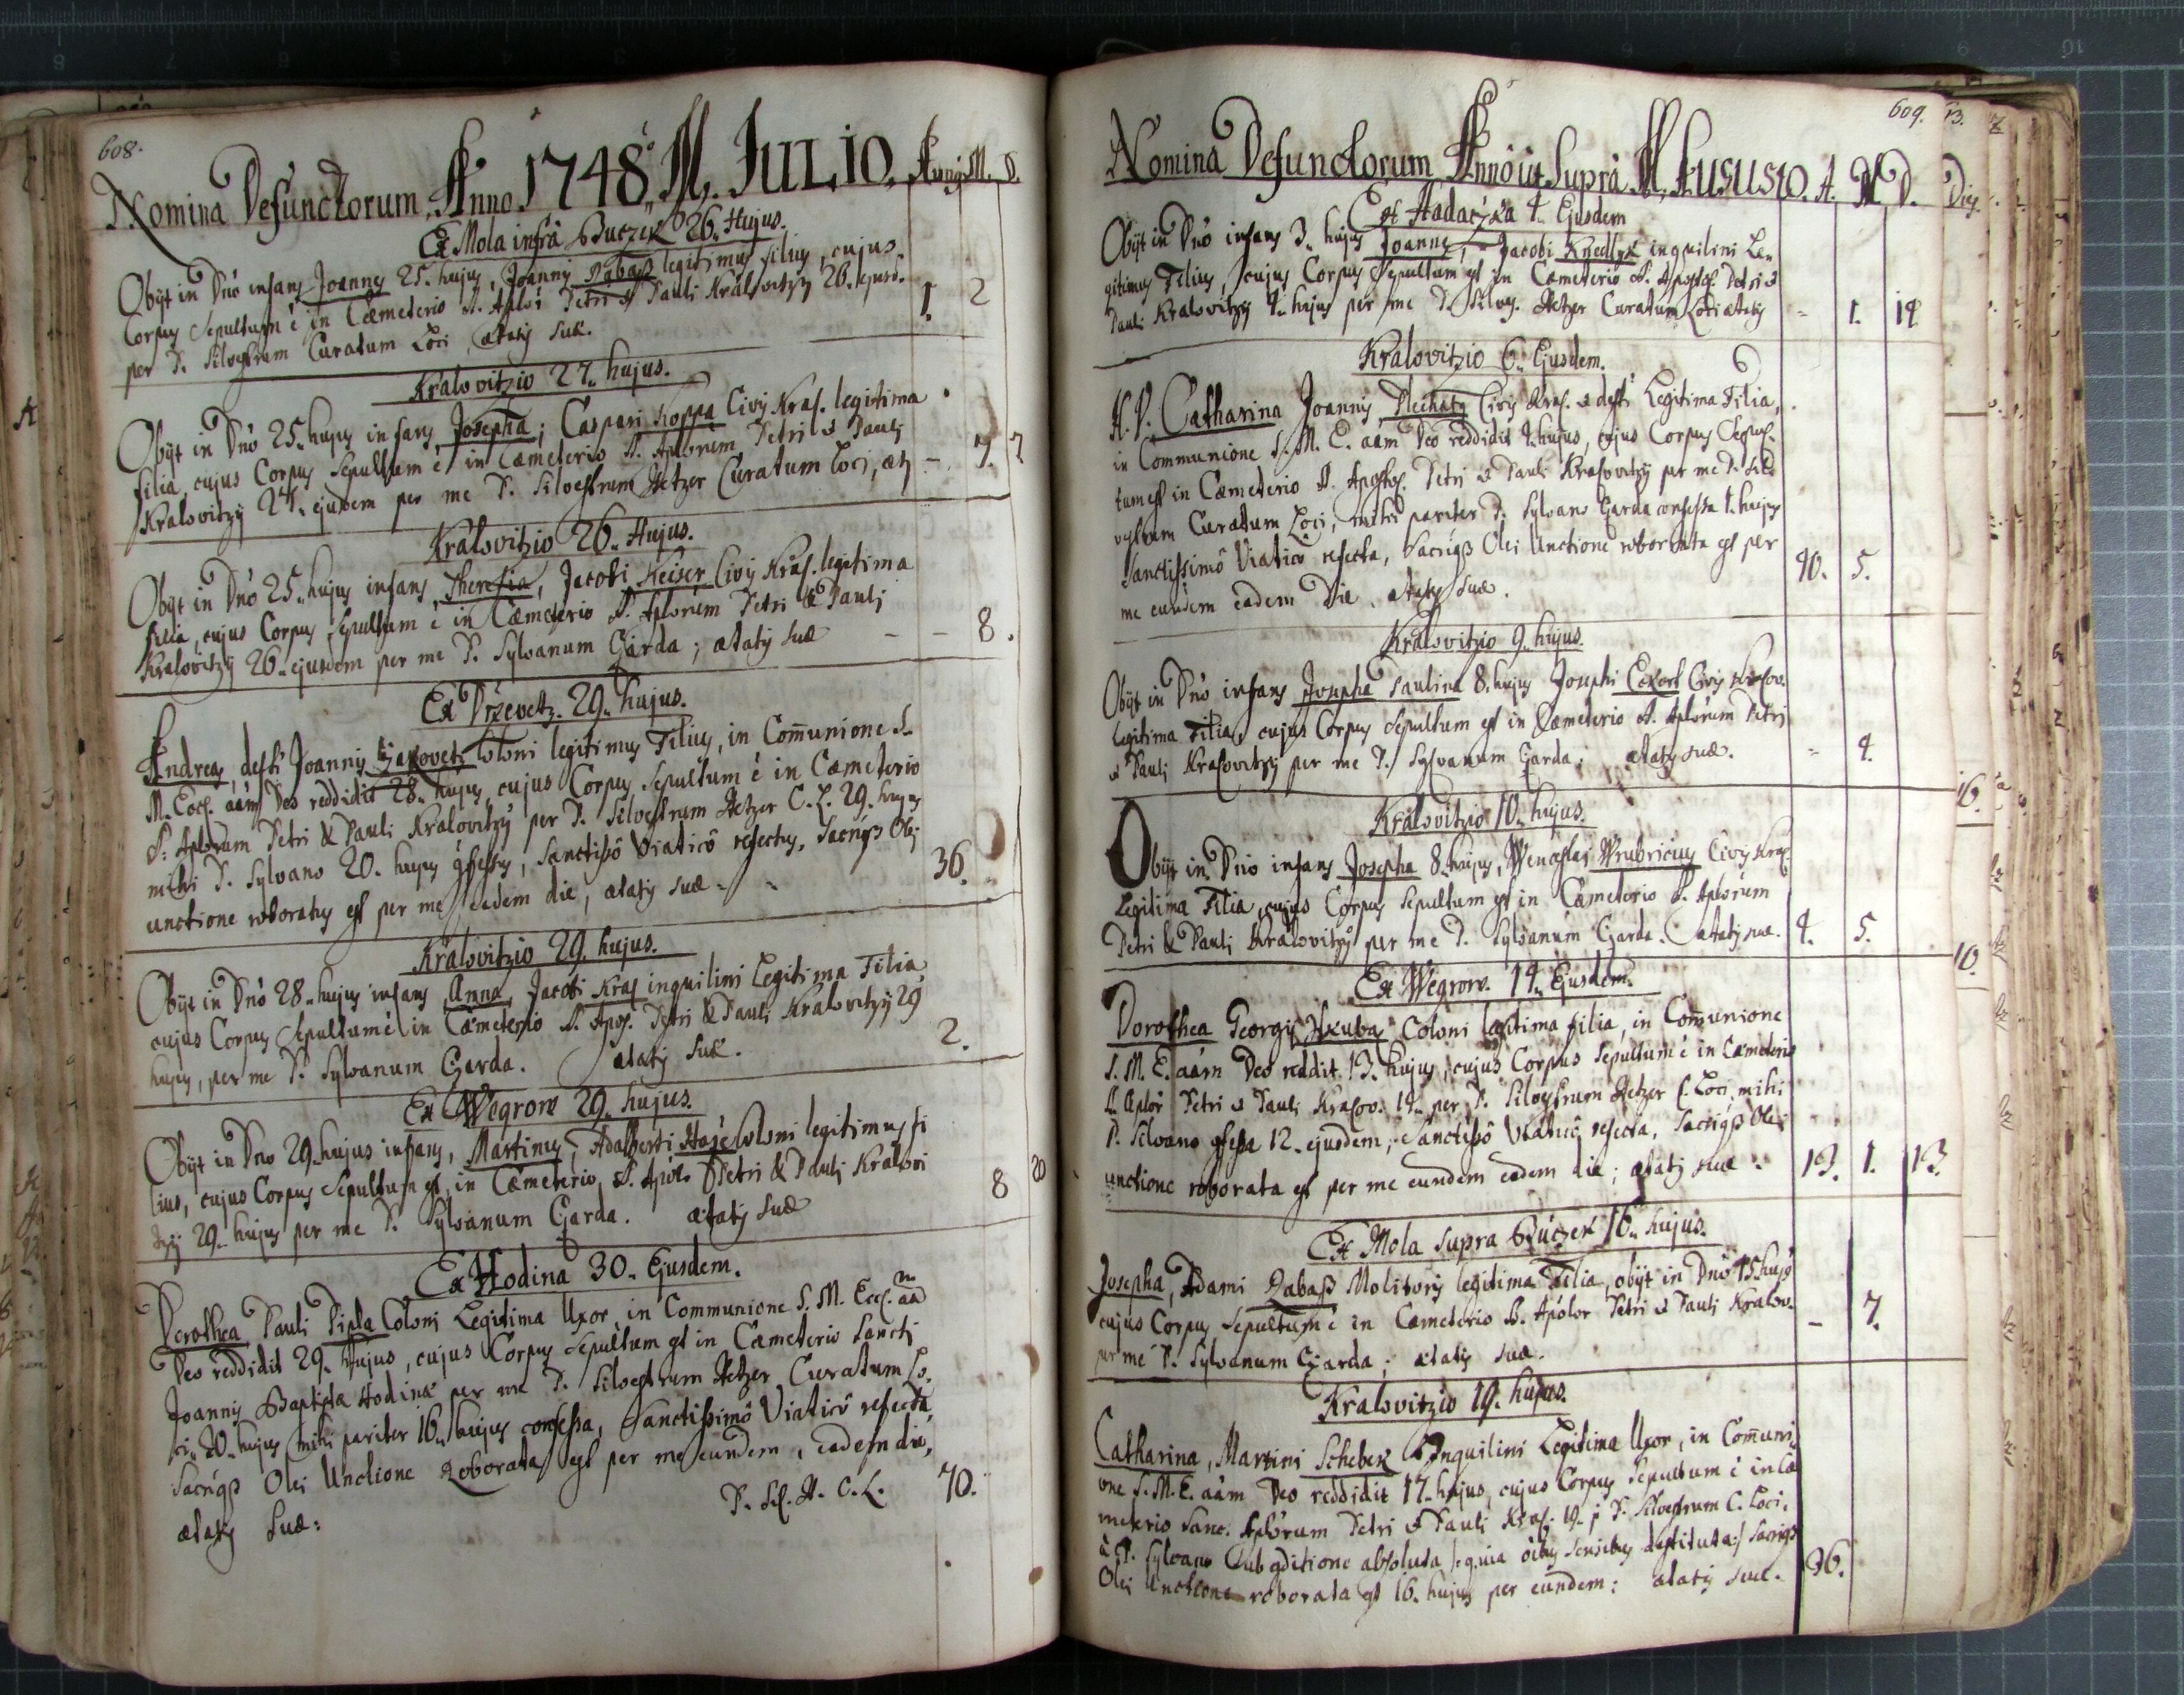 608.
Nomina Defunctorum Anno 1748 M. JULIO. Anni M. D.
Ex Mola infra Buczek 26. Hujus.
Obijt in Dno infans Joannes 25. hujus, Joannis legitimus filius, cujus
Corpus Sepultum ē in Cæmeterio S. Aplor Petri & Pauli Kralovitzij 26. ejusd.
per P. Silvestrum Curatum Loci, ætatis suæ. 1. 2
Kralovitzio 27. hujus.
Obijt in Dno 25. hujus infans Josepha; Caspari Koppa Civis Kral. legitima
filia, cujus Corpus Sepultum ē in Cæmeterio S. Aplorum Petri & Pauli
Kralovitzij 27. ejusdem per me P. Silvestrum Hetzer Curatum Loci, æt. - 7. 7
Kralovitzio 26. Hujus.
Obijt in Dno 25. hujus infans Theresia, Jacobi Keiser Civis Kral. legitima
filia, cujus Corpus Sepultum ē in Cæmeterio S. Aplorum Petri & Pauli
Kralovitzij 26. ejusdem per me P. Sylvanum Garda; ætatis suæ - - 8.
Ex Drzevetz. 29. hujus.
Andreas, defti Joannis Coloni legitimus Filius, in Com̄unione S.
M. Eccl. aām Deo reddidit 28. hujus, cujus Corpus Sepultum ē in Cæmeterio
S. Aplorum Petri & Pauli Kralovitzij per P. Silvestrum Hetzer C. L. 29. hujus
mihi P. Sylvano 20. hujus gfessus, Sanctissô Viaticô refectus, Olei
unctione roboratus est per me eadem die, ætatis suæ - - 36.
Kralovitzio 29. hujus.
Obijt in Dno 28. hujus infans Anna, Jacobi Kras inquilini Legitima Filia
cujus Corpus Sepultum ē in Cæmeterio S. Apos. Petri & Pauli Kralovitzij 29
hujus, per me P. Sylvanum Garda. ætatis suæ. 2.
Ex Wegrow 29. hujus.
Obijt in Dno 29. hujus infans, Martinus, Adalberti Coloni legitimus fi
lius, cujus Corpus Sepultum est in Cæmeterio S. Apol. Petri & Pauli Kralovi
tzij 29. hujus per me P. Sylvanum Garda. ætatis suæ 8 20
Ex Hodina 30. Ejusdem.
Dorothea Pauli Pipla Coloni Legitima Uxor in Communione S. M. Eccl. aām
Deo reddidit 29. Hujus, cujus Corpus Sepultum est in Cæmeterio Sancti
Joannis Baptistæ Hodinæ per me P. Silvestrum Hetzer Curatum Lo.
ci. 20. hujus mihi pariter 16. hujus confessa, Sanctissimô Viaticô refecta,
Olei Unctione Roborata est per me eundem, eadem die,
ætatis Suæ: P. Sil. H. C. L. 70.
609.
Nomina Defunctorum Anno ut Supra M. AUGUSTO. A. M. D.
Ex Hadaczka 4. Ejusdem
Obijt in Dno infans 3. hujus Joannes, Jacobi Knedlyk inquilini Le-
gitimus Filius, cujus Corpus Sepultum est in Cæmeterio S. Apostol. Petri &
Pauli Kralovitzij 4. hujus per me P. Silves. Hetzer Curatum Loci ætatis - 1. 14
Kralovitzio 6. Ejusdem.
H. V. Catharina Joannis Plechaty Civis Kral. & defti Legitima Filia,
in Communione S. M. E. aām Deo reddidit hujus, cujus Corpus Sepul-
tum est in Cæmeterio S. Apostol. Petri & Pauli Kralovitzij per me P. Sil-
vestrum Curatum Loci, mihi pariter P. Sylvano Garda confessa 1. hujus
Sanctissimô Viaticô refecta, Olei Unctione roborata est per
me eundem eadem Die, ætatis Suæ. 40. 5.
Kralovitzio 9. hujus.
Obijt in Dno infans Josepha Paulina 8. hujus Josephi Civis Kralov.
legitima Filia, cujus Corpus Sepultum est in Cæmeterio S. Aplorum Petri
& Pauli Kralovitzij per me P. Sylvanum Garda; ætatis suæ. - 4.
Kralovitzio 10. hujus.
Obijt in Dno infans Josepha 8. hujus, Wenceslai Wrubricius Civis Kral.
Legitima Filia, cujus Corpus Sepultum est in Cæmeterio S. Aplorum
Petri & Pauli Kralovitzij per me P. Sylvanum Garda. ætatis suæ. 4. 5.
Ex Wegrow. 14. Ejusdem.
Dorothea Georgij Coloni legitima filia, in Com̄unione
S. M. E. aām Deo reddit. 13. hujus, cujus Corpus Sepultum ē in Cæmeterio
S. Aplor Petri & Pauli Kralov. 14. per P. Silvestrum Hetzer C. Loci, mihi
P. Silvano gfessa 12. ejusdem, Sanctissô Viaticô refecta, Olei
unctione roborata est per me eundem eadem die; ætatis suæ. 13. 1. 13.
Ex Mola supra Buczek 16. hujus.
Josepha, Adami Molitoris legitima Filia, obijt in Dno 15. hujus
cujus Corpus Sepultum ē in Cæmeterio S. Apolor Petri & Pauli Kralov.
per me P. Sylvanum Garda; ætatis suæ. - 7.
Kralovitzio 19. hujus.
Catharina, Martini Schebek Inquilini Legitima Uxor, in Com̄uni-
one S. M. E. aām Deo reddidit 17. hujus, cujus Corpus Sepultum ē in Cæ
meterio Sanc. Aplorum Petri & Pauli Kral. 19. p P. Silvestrum C. Loci,
à P. Sylvano sub gditione absoluta /: quia oībus sensibus destituta :/
Olei Unctione roborata est 16. hujus per eundem: ætatis suæ. 36.